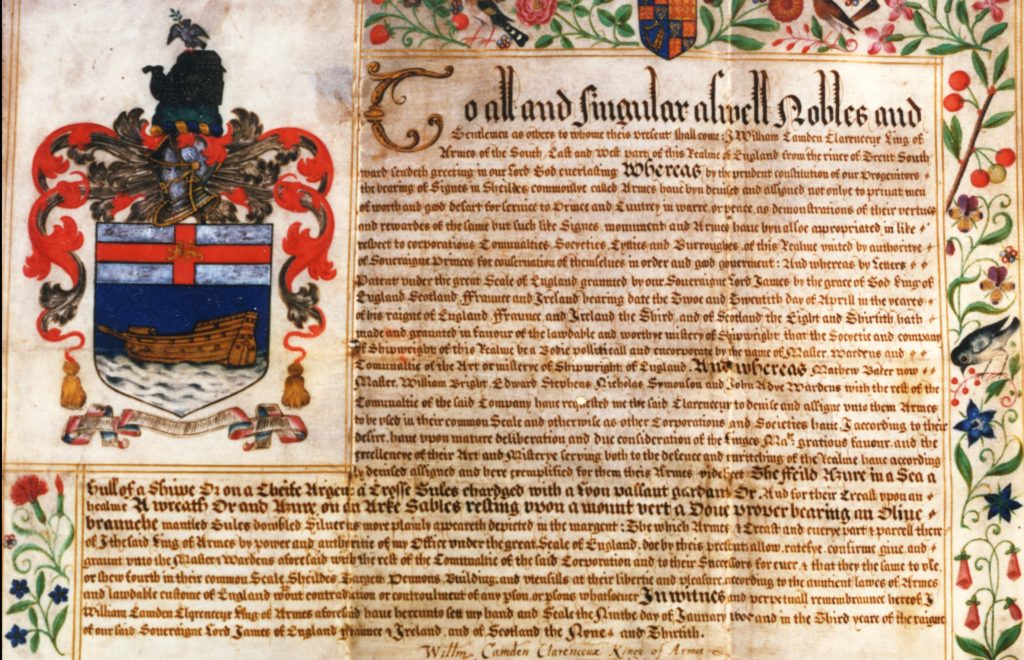 To all and singular alswell Nobles and
Gentlemen as others to whome theis present shall come: I William Camden Clarenceux King of
Armes of the South East and West part of this Realme of England from the river of Trent South
ward sendeth greeting in our Lord God everlasting Whereas by the prudent constitution of our Progenitors
the bearing of Signes in Sheildes commonlye called Armes haue byn deuised and assigned not onlye to privat men
of worth and god desart for service to Prince and Cuntrey in warre, or peace, as demonstrations of their vertues
and rewardes of the same but such like Signes, monument and Armes haue byn alsoe appropriated in like
respect to corporations Comunalties, Socyeties, Cytties and Burroughes, of this Realme vnited by authoritye
of Soueraigne Princes for conseruation of themselues in order and god gouerment: And whereas by Leters
Patent vnder the great Seale of England graunted by our Soueraigne Lord James by the grace of God King of
England Scotland, Ffraunce and Ireland bearing date the Twoe and Twentith day of Aprill in the yeares
of his raigne of England Ffraunce, and Ireland the Third, and of Scotland the Eight and Thirtith hath
made and graunted in fauour of the lawdable and worthye mistery of Shipwright, that the Socyetie and company
of Shipwright of this Realme be a Bodie politicall and encorporate by the name of Master, Wardens and
Comunaltie of the Art or misterye of Shipwright of England. And whereas Mathew Baker now
Master, William Bright, Edward Stephens, Nicholas Symonson and John Adye Wardens with the rest of the
Comunaltie of the said Company haue requested me the said Clarenceux to deuise and assigne vnto them Armes
to be vsed in their common Seale and otherwise as other Corporations and Societies haue, I according to their
desire, haue vpon mature deliberation and due consideration of the Kinges Mats gratious fauour, and the
excellencye of their Art and Misterye serving both to the defence and enritching of the Realme haue according
ly deuised assigned and here exemplified for them theis Armes videlicet The ffeild Azure in a Sea a
hull of a Shipe Or on a Cheife Argent a Crosse Gules chardged with a Lyon passant gardant Or. And for their Creast vpon an
healme A wreath Or and Azure, on an Arke Sables resting vpon a mount vert a Doue proper bearing an Oliue
braunche mantled Gules dowbled Siluer as more plainly appeareth depicted in the margent: The which Armes & Creast and euerye part & parcell there
of I the said King of Armes by power and authoritie of my Office vnder the great Seale of England, doe by theis presents allow, ratefye, confirme giue, and
graunt vnto the Master, Wardens aforesaid and to the rest of the Comunaltie of the said Corporation and to their Successors for euer & that they the same to vse,
or shew fourth in their common Seale, Sheildes, Targett, Pennons, Building, and vtensills at their libertie and pleasure, according to the auntient lawes of Armes
and lawdable custome of England wthout contradiction or controulment of any pson, or psons whatsoeuer In witnes and perpetuall remembraunce hereof I
William Camden Clarenceux King of Armes aforesaid haue hereunto sett my hand and Seale the Ninthe day of January 1605 and in the Third yeare of the raigne
of our said Soueraigne Lord James of England Ffraunce & Ireland, and of Scotland the None and Thirtith.
Willm Camden Clarenceux Kinge of Armes